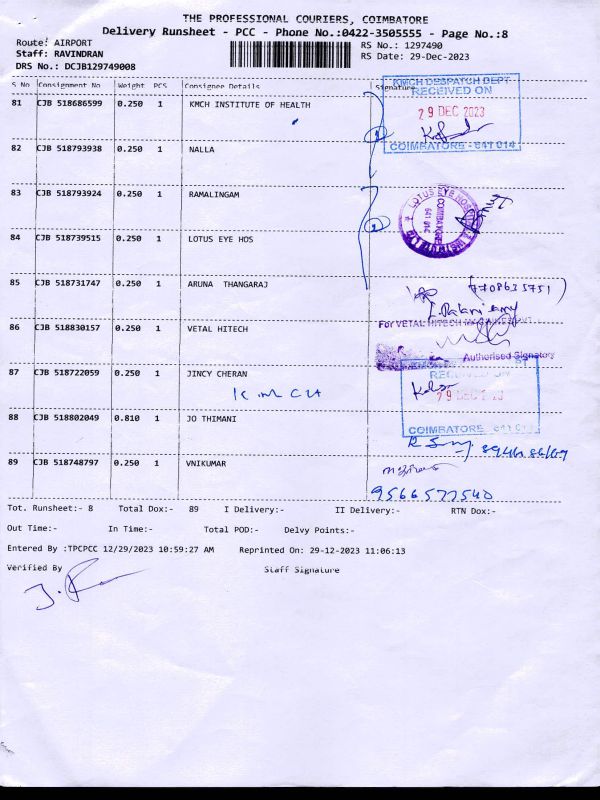 THE PROFESSIONAL COURIERS, COIMBATORE
Delivery Runsheet - PCC - Phone No.:0422-3505555 - Page No.:8
Route: AIRPORT
Staff: RAVINDRAN
DRS No.: DCJB129749008
RS No.: 1297490
RS Date: 29-Dec-2023
S No Consignment No Weight PCS Consignee Details Signature
81 CJB 518686599 0.250 1 KMCH INSTITUTE OF HEALTH
KMCH DESPATCH DEPT
RECEIVED ON
29 DEC 2023
COIMBATORE - 641 014
82 CJB 518793938 0.250 1 NALLA
83 CJB 518793924 0.250 1 RAMALINGAM
LOTUS EYE HOSPITAL
COIMBATORE
641 014
84 CJB 518739515 0.250 1 LOTUS EYE HOS
85 CJB 518731747 0.250 1 ARUNA THANGARAJ
(7708635751)
86 CJB 518830157 0.250 1 VETAL HITECH
For VETAL HITECH
Authorised Signatory
87 CJB 518722059 0.250 1 JINCY CHERAN
K M C H
RECEIVED ON
29 DEC 2023
COIMBATORE - 641 014
88 CJB 518802049 0.810 1 JO THIMANI
89 CJB 518748797 0.250 1 VNIKUMAR
9566577540
Tot. Runsheet:- 8 Total Dox:- 89 I Delivery:- II Delivery:- RTN Dox:-
Out Time:- In Time:- Total POD:- Delvy Points:-
Entered By :TPCPCC 12/29/2023 10:59:27 AM Reprinted On: 29-12-2023 11:06:13
Verified By Staff Signature